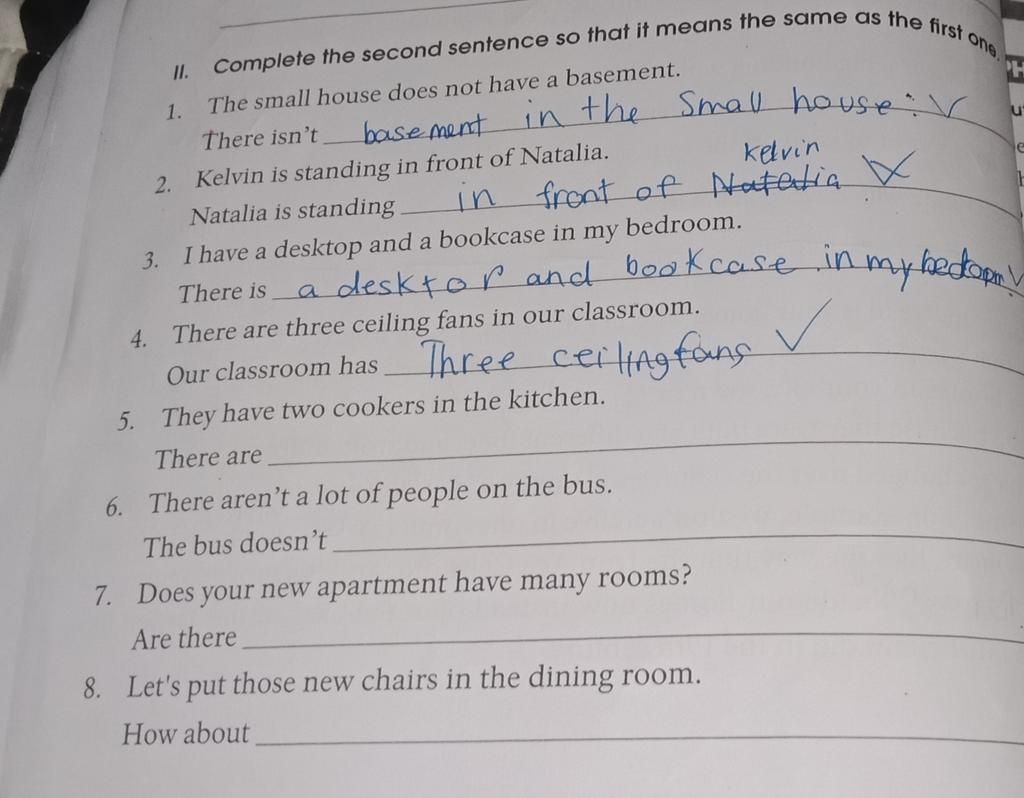 II. Complete the second sentence so that it means the same as the first one.
1. The small house does not have a basement.
There isn't basement in the small house.
2. Kelvin is standing in front of Natalia.
kelvin
Natalia is standing in front of Natalia
3. I have a desktop and a bookcase in my bedroom.
There is a desktop and bookcase in my
4. There are three ceiling fans in our classroom.
Our classroom has Three ceiling fans
5. They have two cookers in the kitchen.
There are
6. There aren't a lot of people on the bus.
The bus doesn't
7. Does your new apartment have many rooms?
Are there
8. Let's put those new chairs in the dining room.
How about